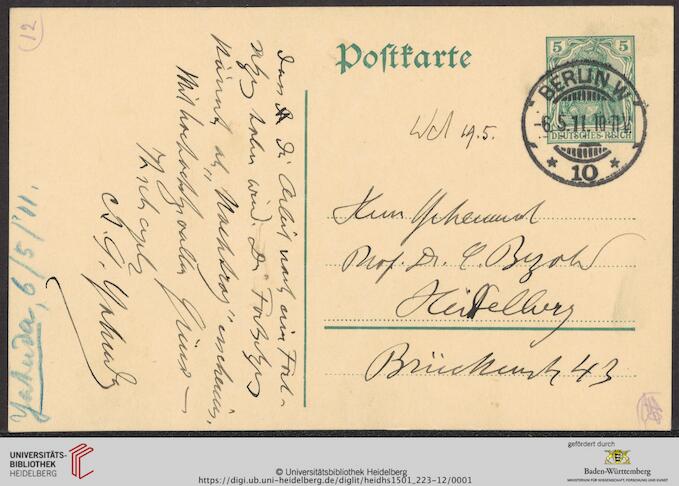 12
Postkarte
5 5
BERLIN W
-6.5.11.10-11V.
* 10 *
DEUTSCHES REICH
19.5.
Herrn Geheimrat
Prof. Dr. C. Bezold
Heidelberg
Brückenstr 43
dass die Arbeit noch eine Fort-
setzung haben wird. Die Fortsetzung
könnte als "Nachtrag" erscheinen.
Mit hochachtungsvollen Grüss
Ihr ergeb.
A. S. Yahuda
Yahuda, 6/5/'11.
UNIVERSITÄTS-
BIBLIOTHEK
HEIDELBERG
© Universitätsbibliothek Heidelberg
https://digi.ub.uni-heidelberg.de/diglit/heidhs1501_223-12/0001
gefördert durch
Baden-Württemberg
MINISTERIUM FÜR WISSENSCHAFT, FORSCHUNG UND KUNST